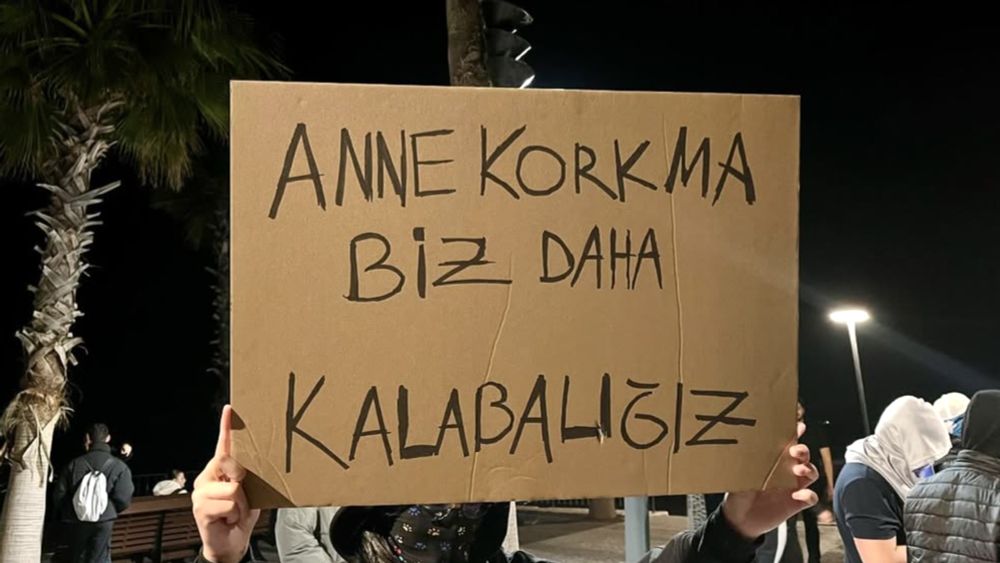 ANNE KORKMA
BİZ DAHA
KALABALIĞIZ